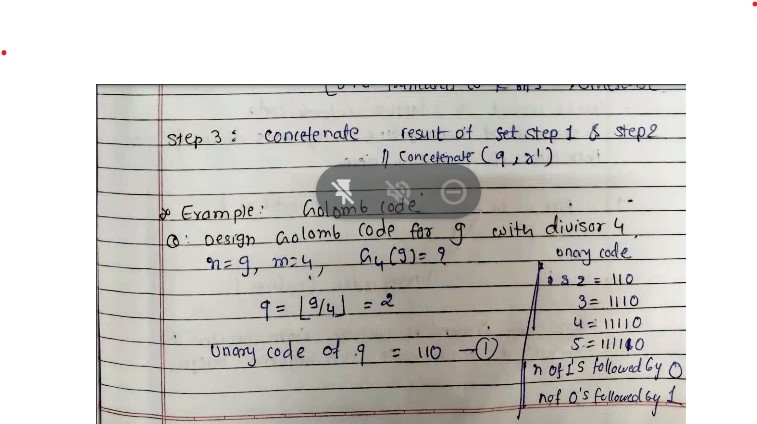 Step 3 : concelenate result of set step 1 & step2
// concelenate (q, r')
Example: Golomb code
Q: Design Golomb Code for 9 with divisor 4.
n=9, m=4, G4(9)= ?
q = ⌊9/4⌋ = 2
Unary code of q = 110 —①
Unary code
2 = 110
3 = 1110
4 = 11110
5 = 111110
n of 1's followed by 0
n of 0's followed by 1